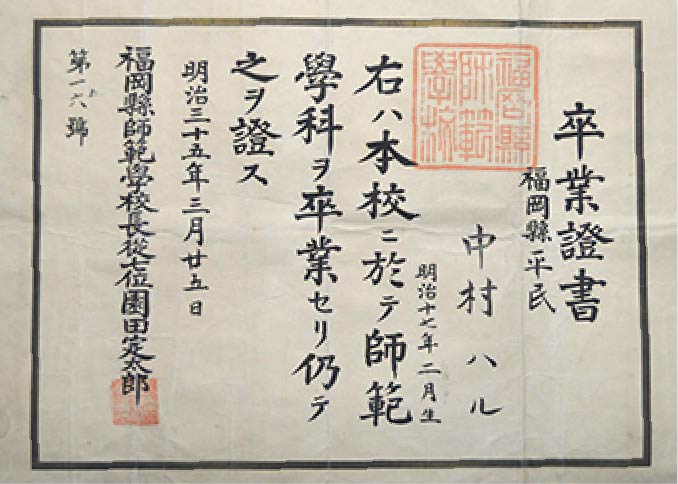 卒業證書
福岡縣平民
中村ハル
明治十七年二月生
右ハ本校ニ於テ師範
學科ヲ卒業セリ仍テ
之ヲ證ス
明治三十五年三月廿五日
福岡縣師範學校長從七位園田定太郎
第一六號
福岡縣
師範
學校